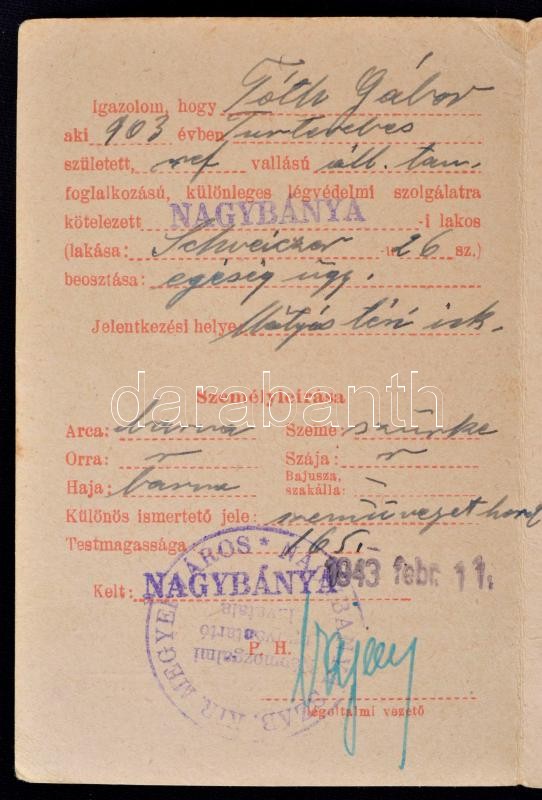 Igazolom, hogy Tóth Gábor
aki 903 évben Turterebes
született, ref vallású áll. tan.
foglalkozású, különleges légvédelmi szolgálatra
kötelezett NAGYBÁNYA -i lakos
(lakása: Schweiczer u 26 sz.)
beosztása: egéség ügy.
Jelentkezési helye Mátyás téri isk.
darabanth
Személyleirása
Arca: barna Szeme: szürke
Orra: r Szája: r
Haja: barna Bajusza, szakálla: –
Különös ismertető jele: szemüveget hord
Testmagassága: 165.-
Kelt: NAGYBÁNYA 1943 febr. 11.
P. H.
légoltalmi vezető